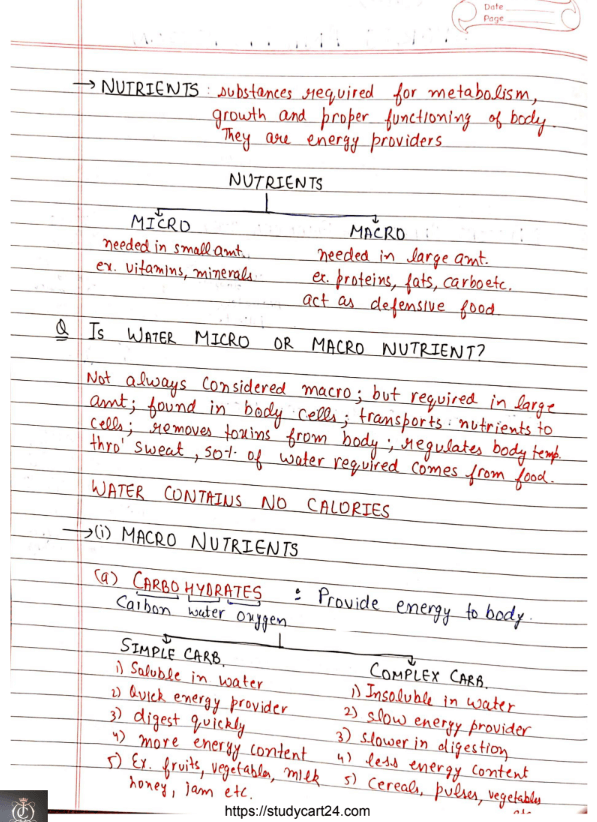 Date
Page
→ NUTRIENTS : substances required for metabolism,
growth and proper functioning of body.
They are energy providers
NUTRIENTS
MICRO
needed in small amt.
ex. vitamins, minerals
MACRO
needed in large amt.
ex. proteins, fats, carbo etc.
act as defensive food
Q IS WATER MICRO OR MACRO NUTRIENT?
Not always considered macro; but required in large
amt; found in body cells; transports nutrients to
cells; removes toxins from body; regulates body temp.
thro' sweat, 50% of water required comes from food.
WATER CONTAINS NO CALORIES
→ (i) MACRO NUTRIENTS
(a) CARBOHYDRATES : Provide energy to body.
Carbon water oxygen
SIMPLE CARB.
1) Soluble in water
2) Quick energy provider
3) digest quickly
4) more energy content
5) Ex. fruits, vegetables, milk
honey, jam etc.
COMPLEX CARB.
1) Insoluble in water
2) slow energy provider
3) slower in digestion
4) less energy content
5) Cereals, pulses, vegetables
etc.
https://studycart24.com